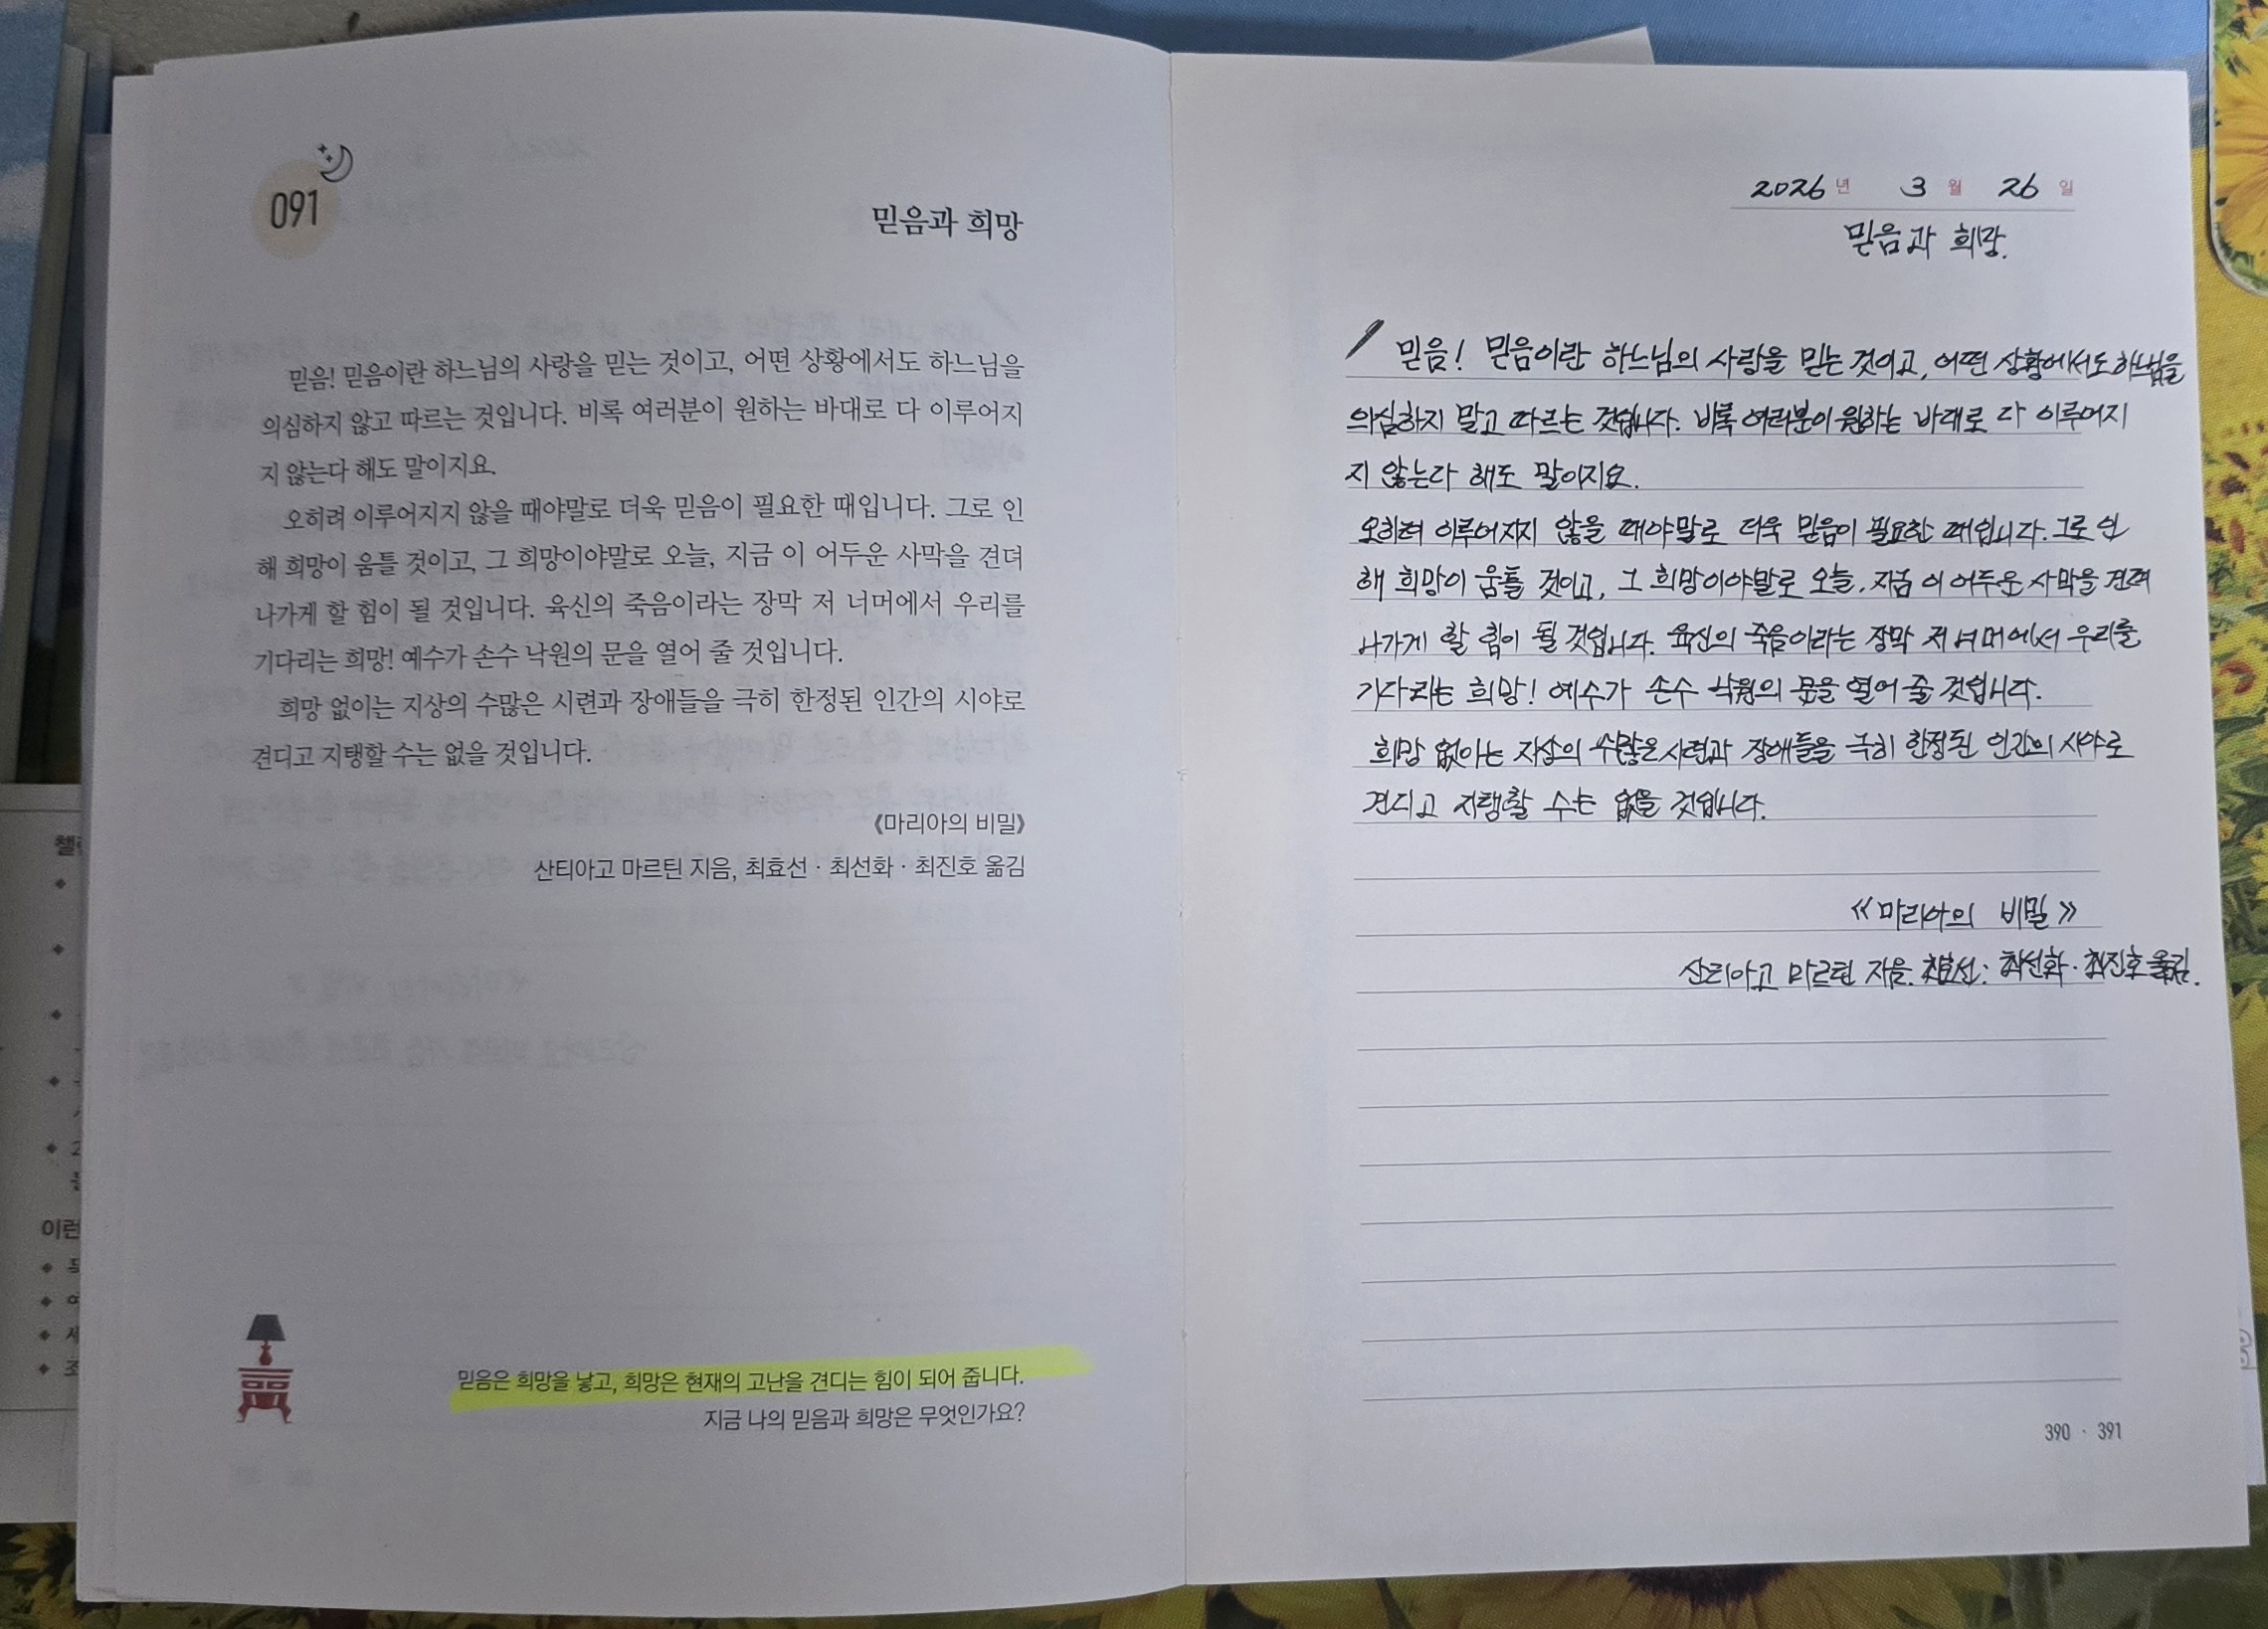 091
믿음과 희망
믿음! 믿음이란 하느님의 사랑을 믿는 것이고, 어떤 상황에서도 하느님을
의심하지 않고 따르는 것입니다. 비록 여러분이 원하는 바대로 다 이루어지
지 않는다 해도 말이지요.
오히려 이루어지지 않을 때야말로 더욱 믿음이 필요한 때입니다. 그로 인
해 희망이 움틀 것이고, 그 희망이야말로 오늘, 지금 이 어두운 사막을 견뎌
나가게 할 힘이 될 것입니다. 육신의 죽음이라는 장막 저 너머에서 우리를
기다리는 희망! 예수가 손수 낙원의 문을 열어 줄 것입니다.
희망 없이는 지상의 수많은 시련과 장애들을 극히 한정된 인간의 시야로
견디고 지탱할 수는 없을 것입니다.
《마리아의 비밀》
산티아고 마르틴 지음, 최효선 · 최선화 · 최진호 옮김
믿음은 희망을 낳고, 희망은 현재의 고난을 견디는 힘이 되어 줍니다.
지금 나의 믿음과 희망은 무엇인가요?
2026년 3월 26일
믿음과 희망.
믿음! 믿음이란 하느님의 사랑을 믿는 것이고, 어떤 상황에서도 하느님을
의심하지 말고 따르는 것입니다. 비록 여러분이 원하는 바대로 다 이루어지
지 않는다 해도 말이지요.
오히려 이루어지지 않을 때야말로 더욱 믿음이 필요한 때입니다. 그로 인
해 희망이 움틀 것이고, 그 희망이야말로 오늘, 지금 이 어두운 사막을 견뎌
나가게 할 힘이 될 것입니다. 육신의 죽음이라는 장막 저 너머에서 우리를
기다리는 희망! 예수가 손수 낙원의 문을 열어 줄 것입니다.
희망 없이는 지상의 수많은 시련과 장애들을 극히 한정된 인간의 시야로
견디고 지탱할 수는 없을 것입니다.
《마리아의 비밀》
산티아고 마르틴 지음. 최효선 · 최선화 · 최진호 옮김.
390 · 391
이런